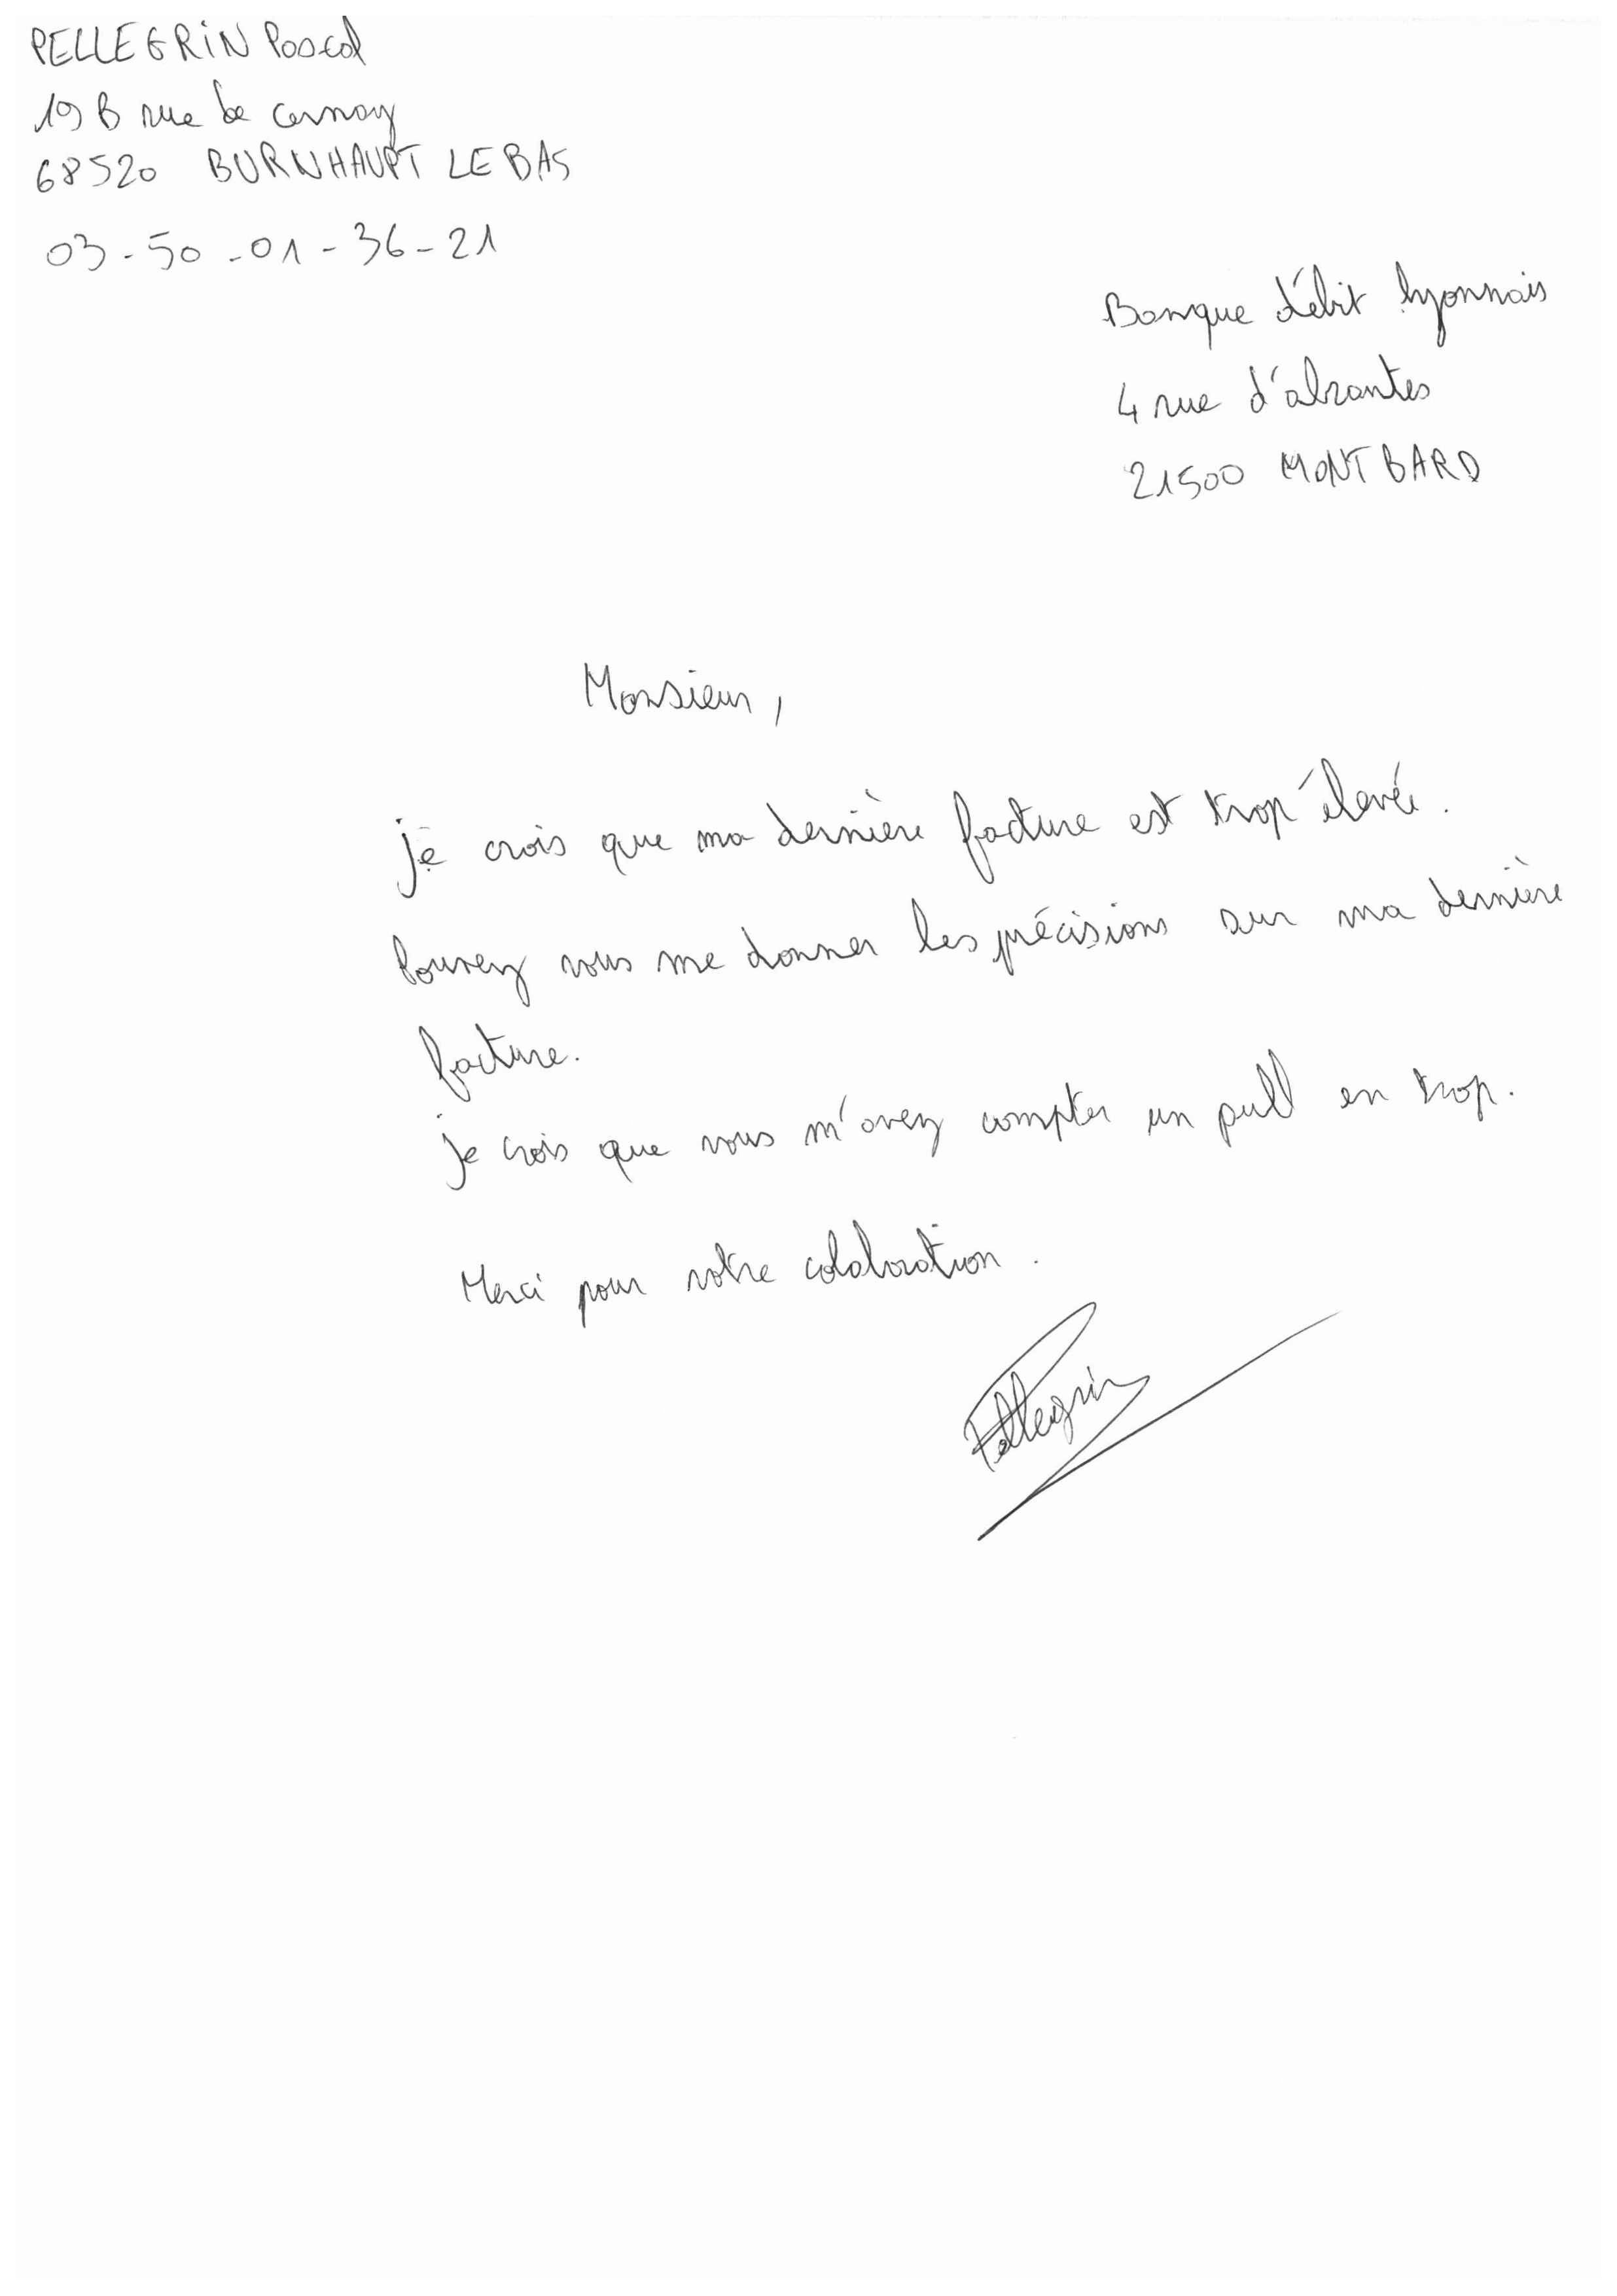 PELLEGRIN Pascal
19 B rue de cernay
68520 BURNHAUPT LE BAS
03-50-01-36-21
Banque débit lyonnais
4 rue d'abrantes
21500 MONTBARD
Monsieur,
je crois que ma dernière facture est trop élevée.
Pouvez vous me donner les précisions sur ma dernière
facture.
je crois que vous m'avez compter un pull en trop.
Merci pour votre colaboration.
Pellegrin